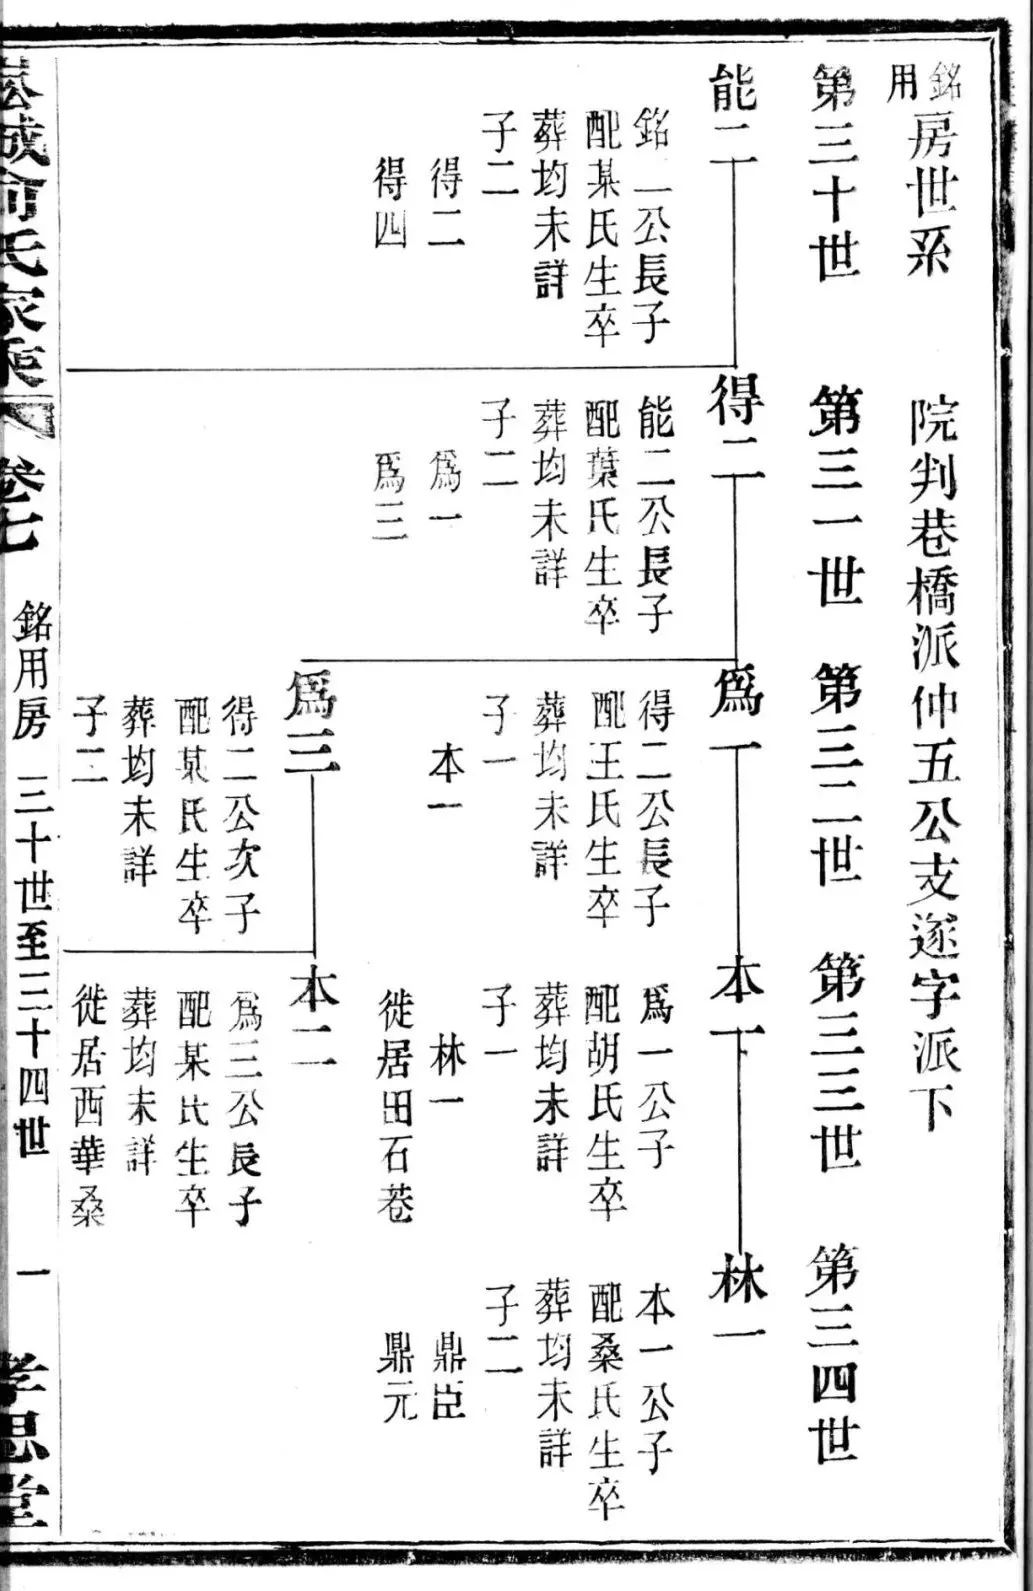 銘用房世系　院判巷橋派仲五公支遂字派下
第三十世　第三一世　第三二世　第三三世　第三四世
能二
銘一公長子
配某氏生卒
葬均未詳
子二
得二
得四
得二
能二公長子
配葉氏生卒
葬均未詳
子二
爲一
爲三
爲一
得二公長子
配王氏生卒
葬均未詳
子一
本一
本一
爲一公子
配胡氏生卒
葬均未詳
子一
林一
徙居田石巷
林一
本一公子
配桑氏生卒
葬均未詳
子二
鼎臣
鼎元
爲三
得二公次子
配某氏生卒
葬均未詳
子二
本二
爲三公長子
配某氏生卒
葬均未詳
徙居西華桑
俞氏家乘　卷七　銘用房　三十世至三十四世　一　孝思堂